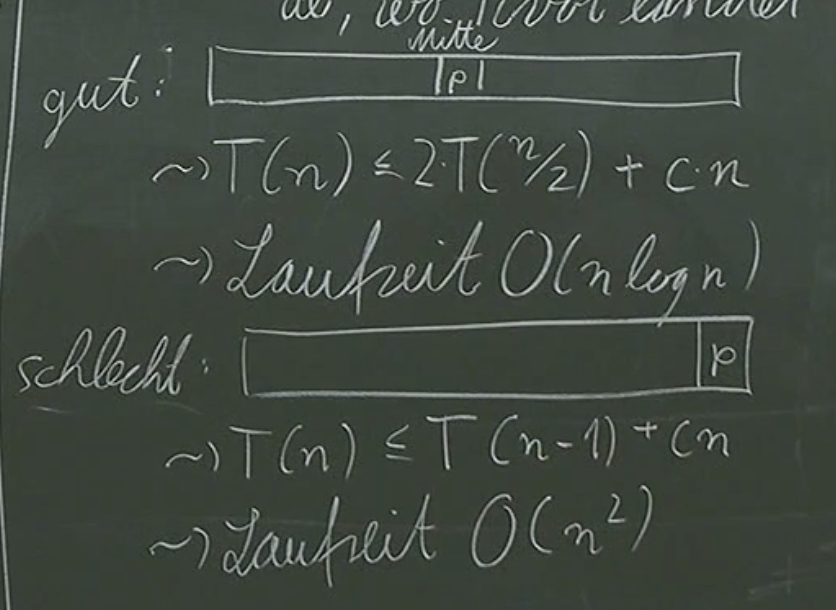 ab, wo Pivot landet
Mitte
gut: |p|
~> T(n) ≤ 2·T(n/2) + c·n
~> Laufzeit O(n log n)
schlecht: p
~> T(n) ≤ T(n-1) + cn
~> Laufzeit O(n²)